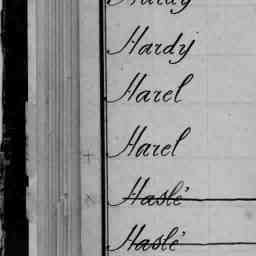 Hardy
Hardy
Harel
Harel
Haslé
Haslé